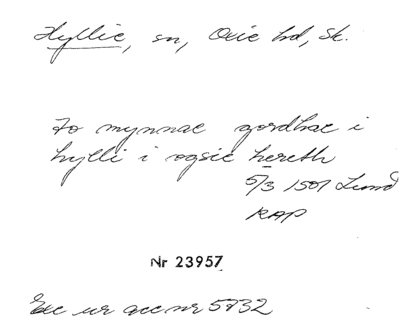 Hyllie, sn, Oxie hd, Sk.
to mynnae gordhae i
hylli i ogsie hereth
5/3 1507 Lund
RAP
Nr 23957
Exc ur acc nr 5732